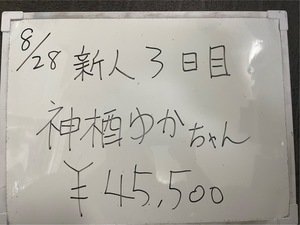 8/28 新人3日目
神楢ゆかちゃん
¥45,500